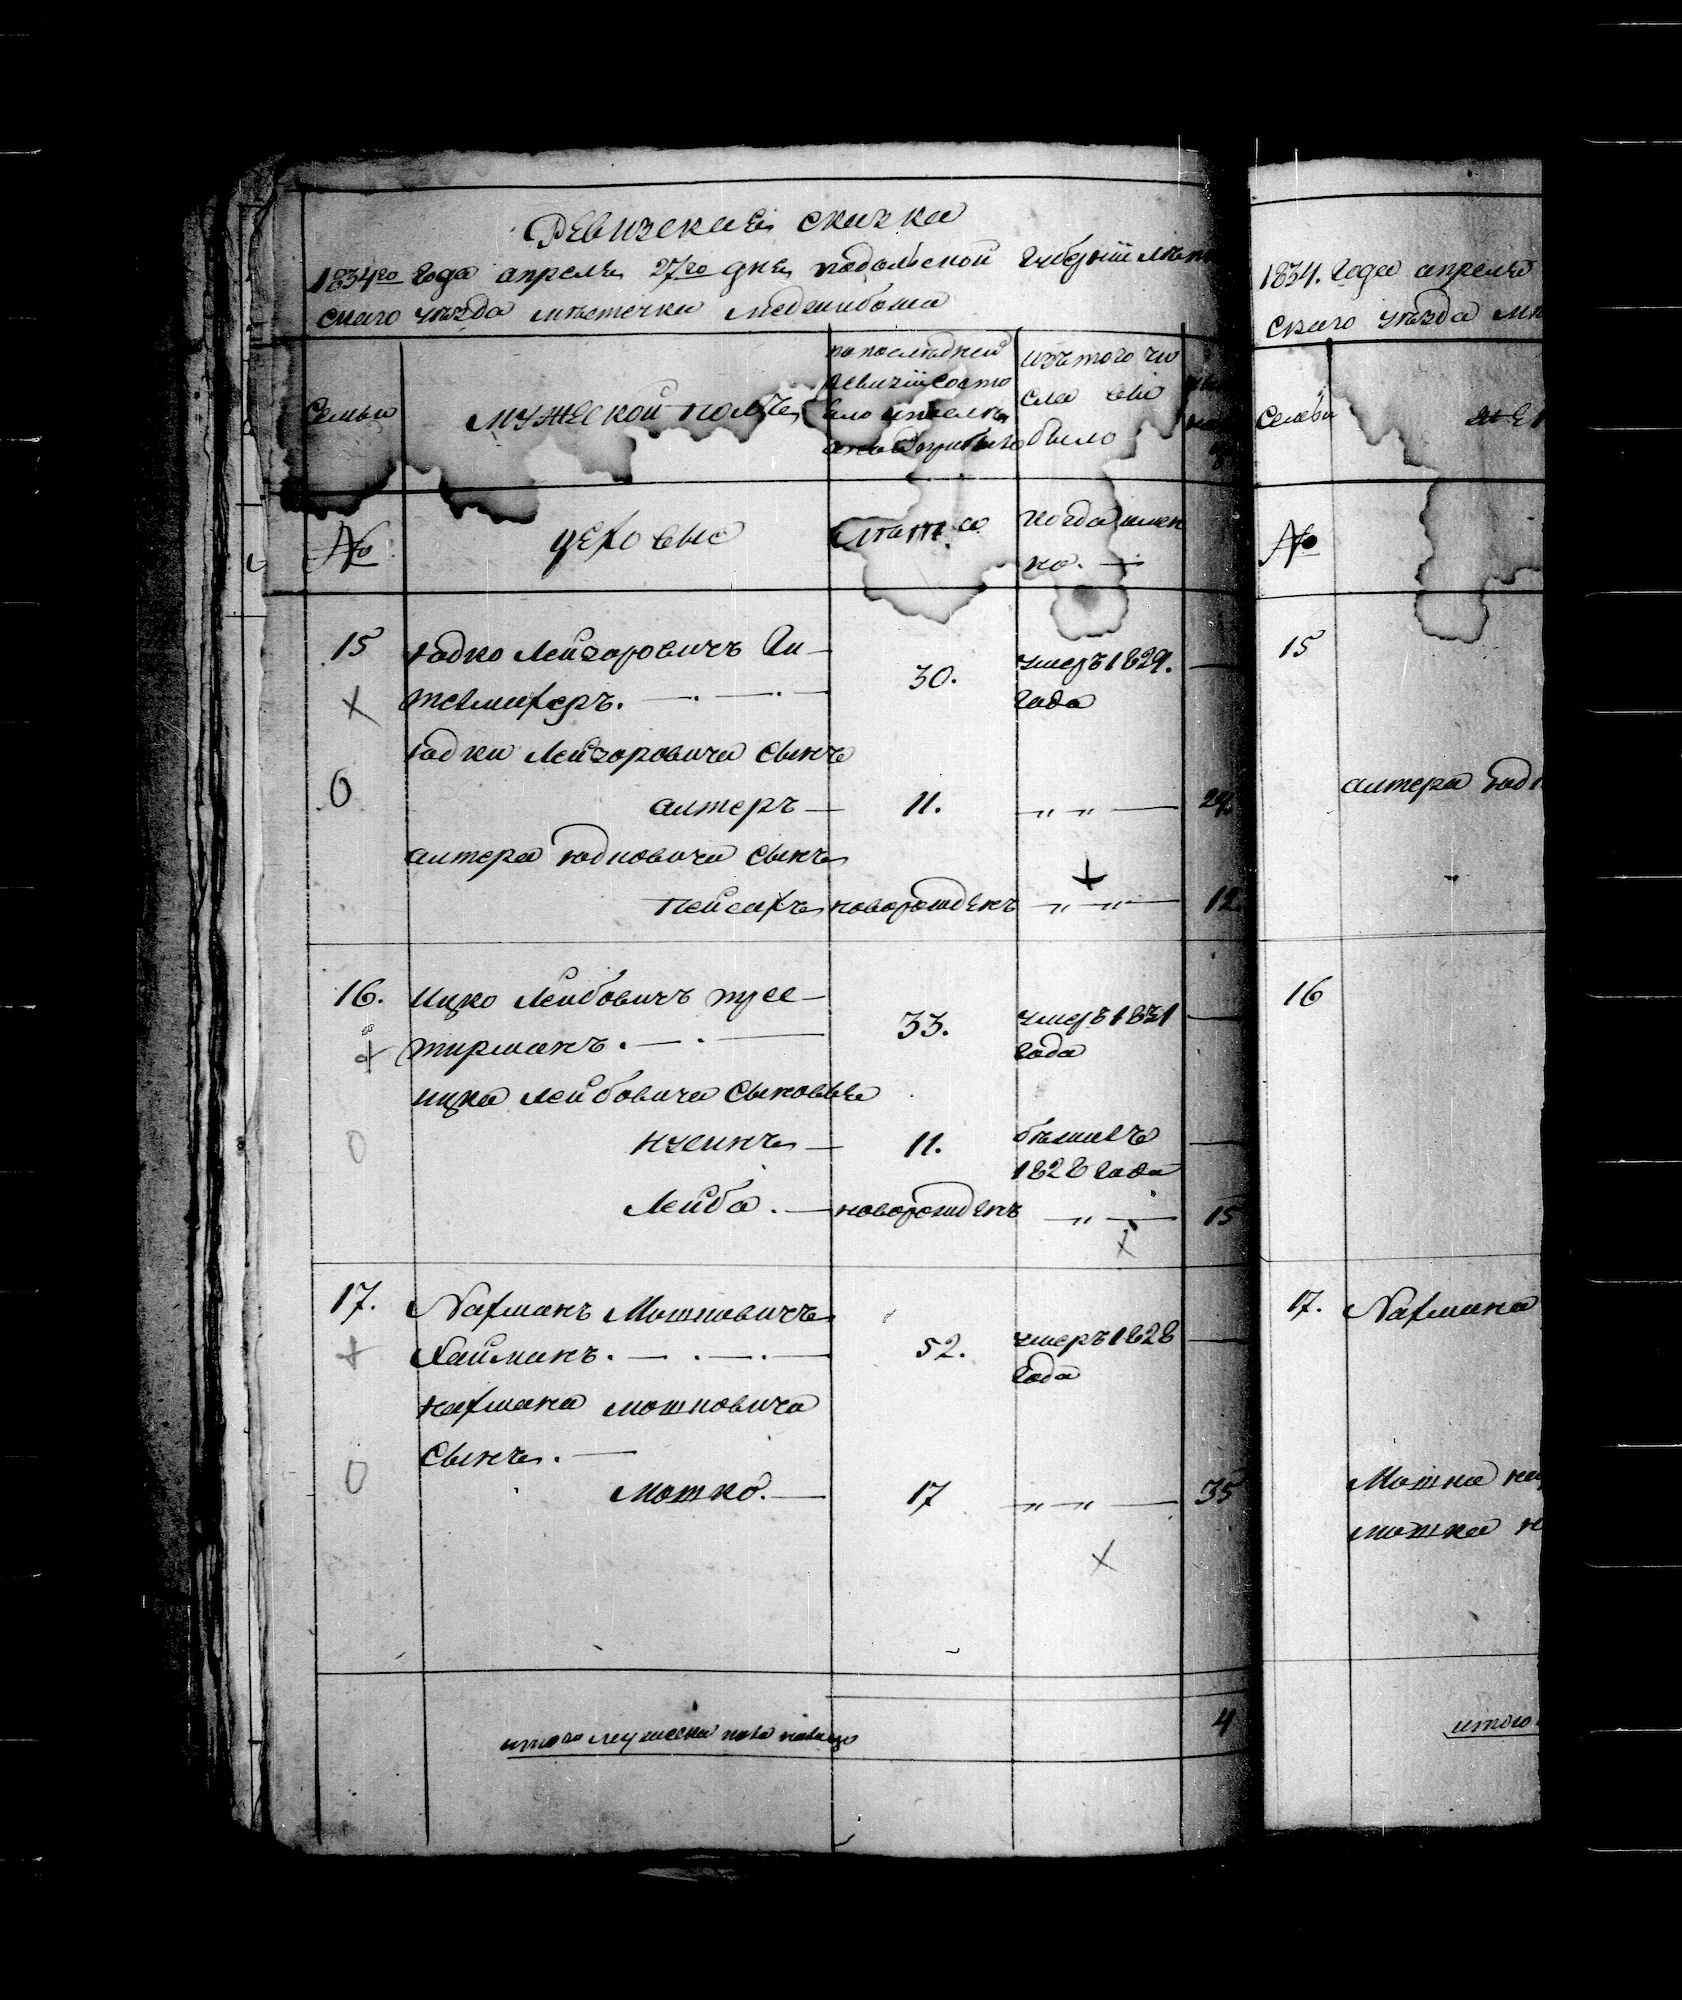 Ревизская сказка
1834го Года апреля 27го дня подольской Губернiи
скаго уезда местечка Меджибожа
Семьи
мужеской полъ
по последней
ревизiи состо
яло и после
изъ того чи
сла выбыло
№
цеховые
Лета
когда имен
но. —
15
юдко Лейзоровичъ
30.
умеръ 1829.
года
юдки Лейзоровича сынъ
алтеръ —
11.
„ „ —
24
алтера юдковича сынъ
пейсахъ
новорожденъ
„ „ —
12
16.
ицко Лейбовичъ
33.
умеръ 1831
года
ицка лейбовича сыновья
нусинъ —
11.
1828 года
Лейба . —
новорожденъ
„ —
15
17.
Нахманъ Мошковичъ
Хайманъ . — . — . —
52.
умеръ 1828
года
нахмана мошковича
сынъ . —
Мошко. —
17
„ „ —
35
итого мужеска пола налицо
4
1834. Года апреля
скаго уезда
Семьи
№
15
алтера
16
17. Нахмана
Мошка
мошка
итого